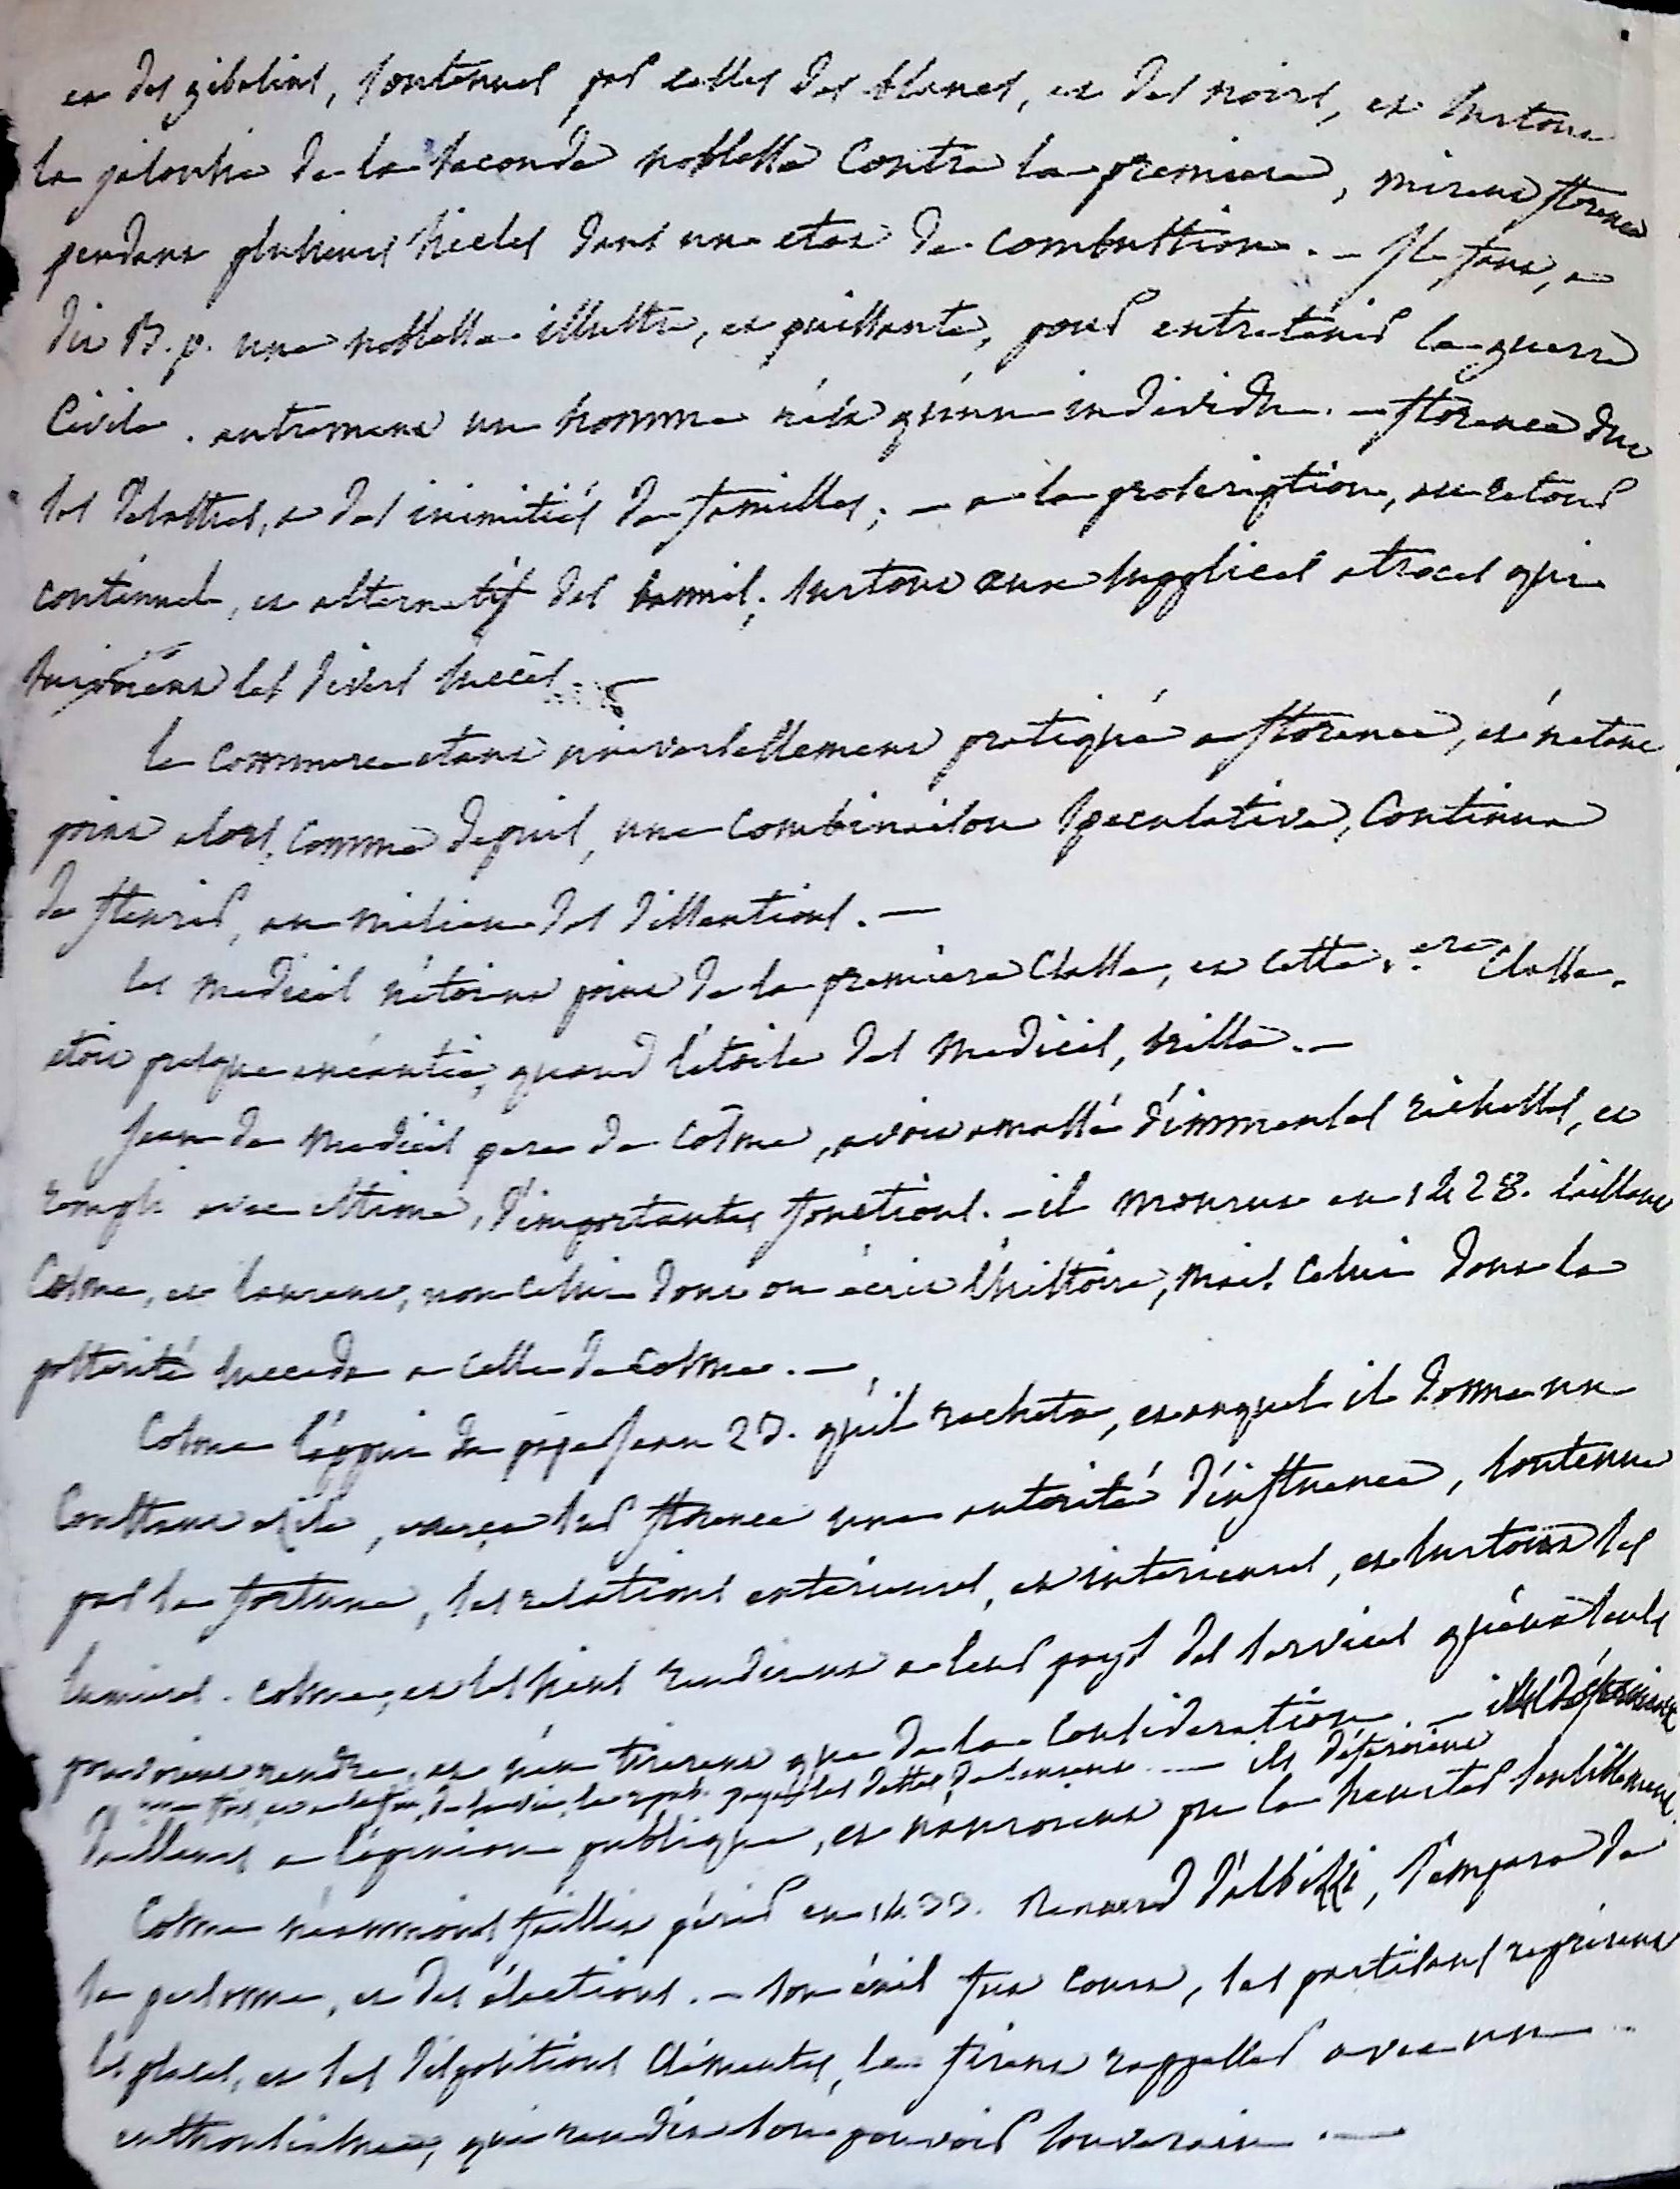 et des gibelins, soutenues par celles des blancs, et des noirs, et surtout
la jalousie de la seconde noblesse contre la premiere, mirent florence
pendant plusieurs siecles dans un etat de combustion. — Il faut, a
dit B. p. une noblesse illustre, et puissante, pour entretenir la guerre
civile. autrement un homme n'est qu'un individu. — florence dut
ses desastres, a des inimitiés de familles; — a la proscription, au retour
continuel, et alternatif des bannis; surtout aux supplices atroces qui
suivoient les divers succès. —
le commerce etant universellement pratiqué a florence, et n'etant
point alors, comme depuis, une combinaison speculative, continua
de fleurir, au milieu des dissentions. —
les medicis n'etoient point de la premiere classe, et cette 1.ere classe
etoit presque anéantie, quand l'étoile des medicis, brilla. —
Jean de medicis pere de Cosme, avoit amassé d'immenses richesses, et
rempli avec estime, d'importantes fonctions. — il mourut en 1428. laissant
Cosme, et laurent, non celui dont on écrit l'histoire, mais celui dont la
posterité succeda a celle de Cosme. —
Cosme l'appui du pape Jean 23. qu'il racheta, et auquel il donna un
constant asile, exerça sur florence une autorité d'influence, soutenue
par sa fortune, ses relations exterieures, et interieures, et surtout ses
lumieres. Cosme, et les siens rendirent a leur pays des services qu'eux seuls
pouvoient rendre, et n'en tirerent que de la consideration. —
la repub. paya les dettes de laurent — ils déferoient
d'ailleurs a l'opinion publique, et n'auroient pu la heurter sensiblement.
Cosme néanmoins faillit périr en 1433. Renaud d'albizzi, s'empara de
sa personne, et des élections. — son éxil fut court, ses partisans reprirent
les places, et ses dispositions clémentes, le firent rappeller avec un
enthousiasme, qui rendit son pouvoir souverain. —